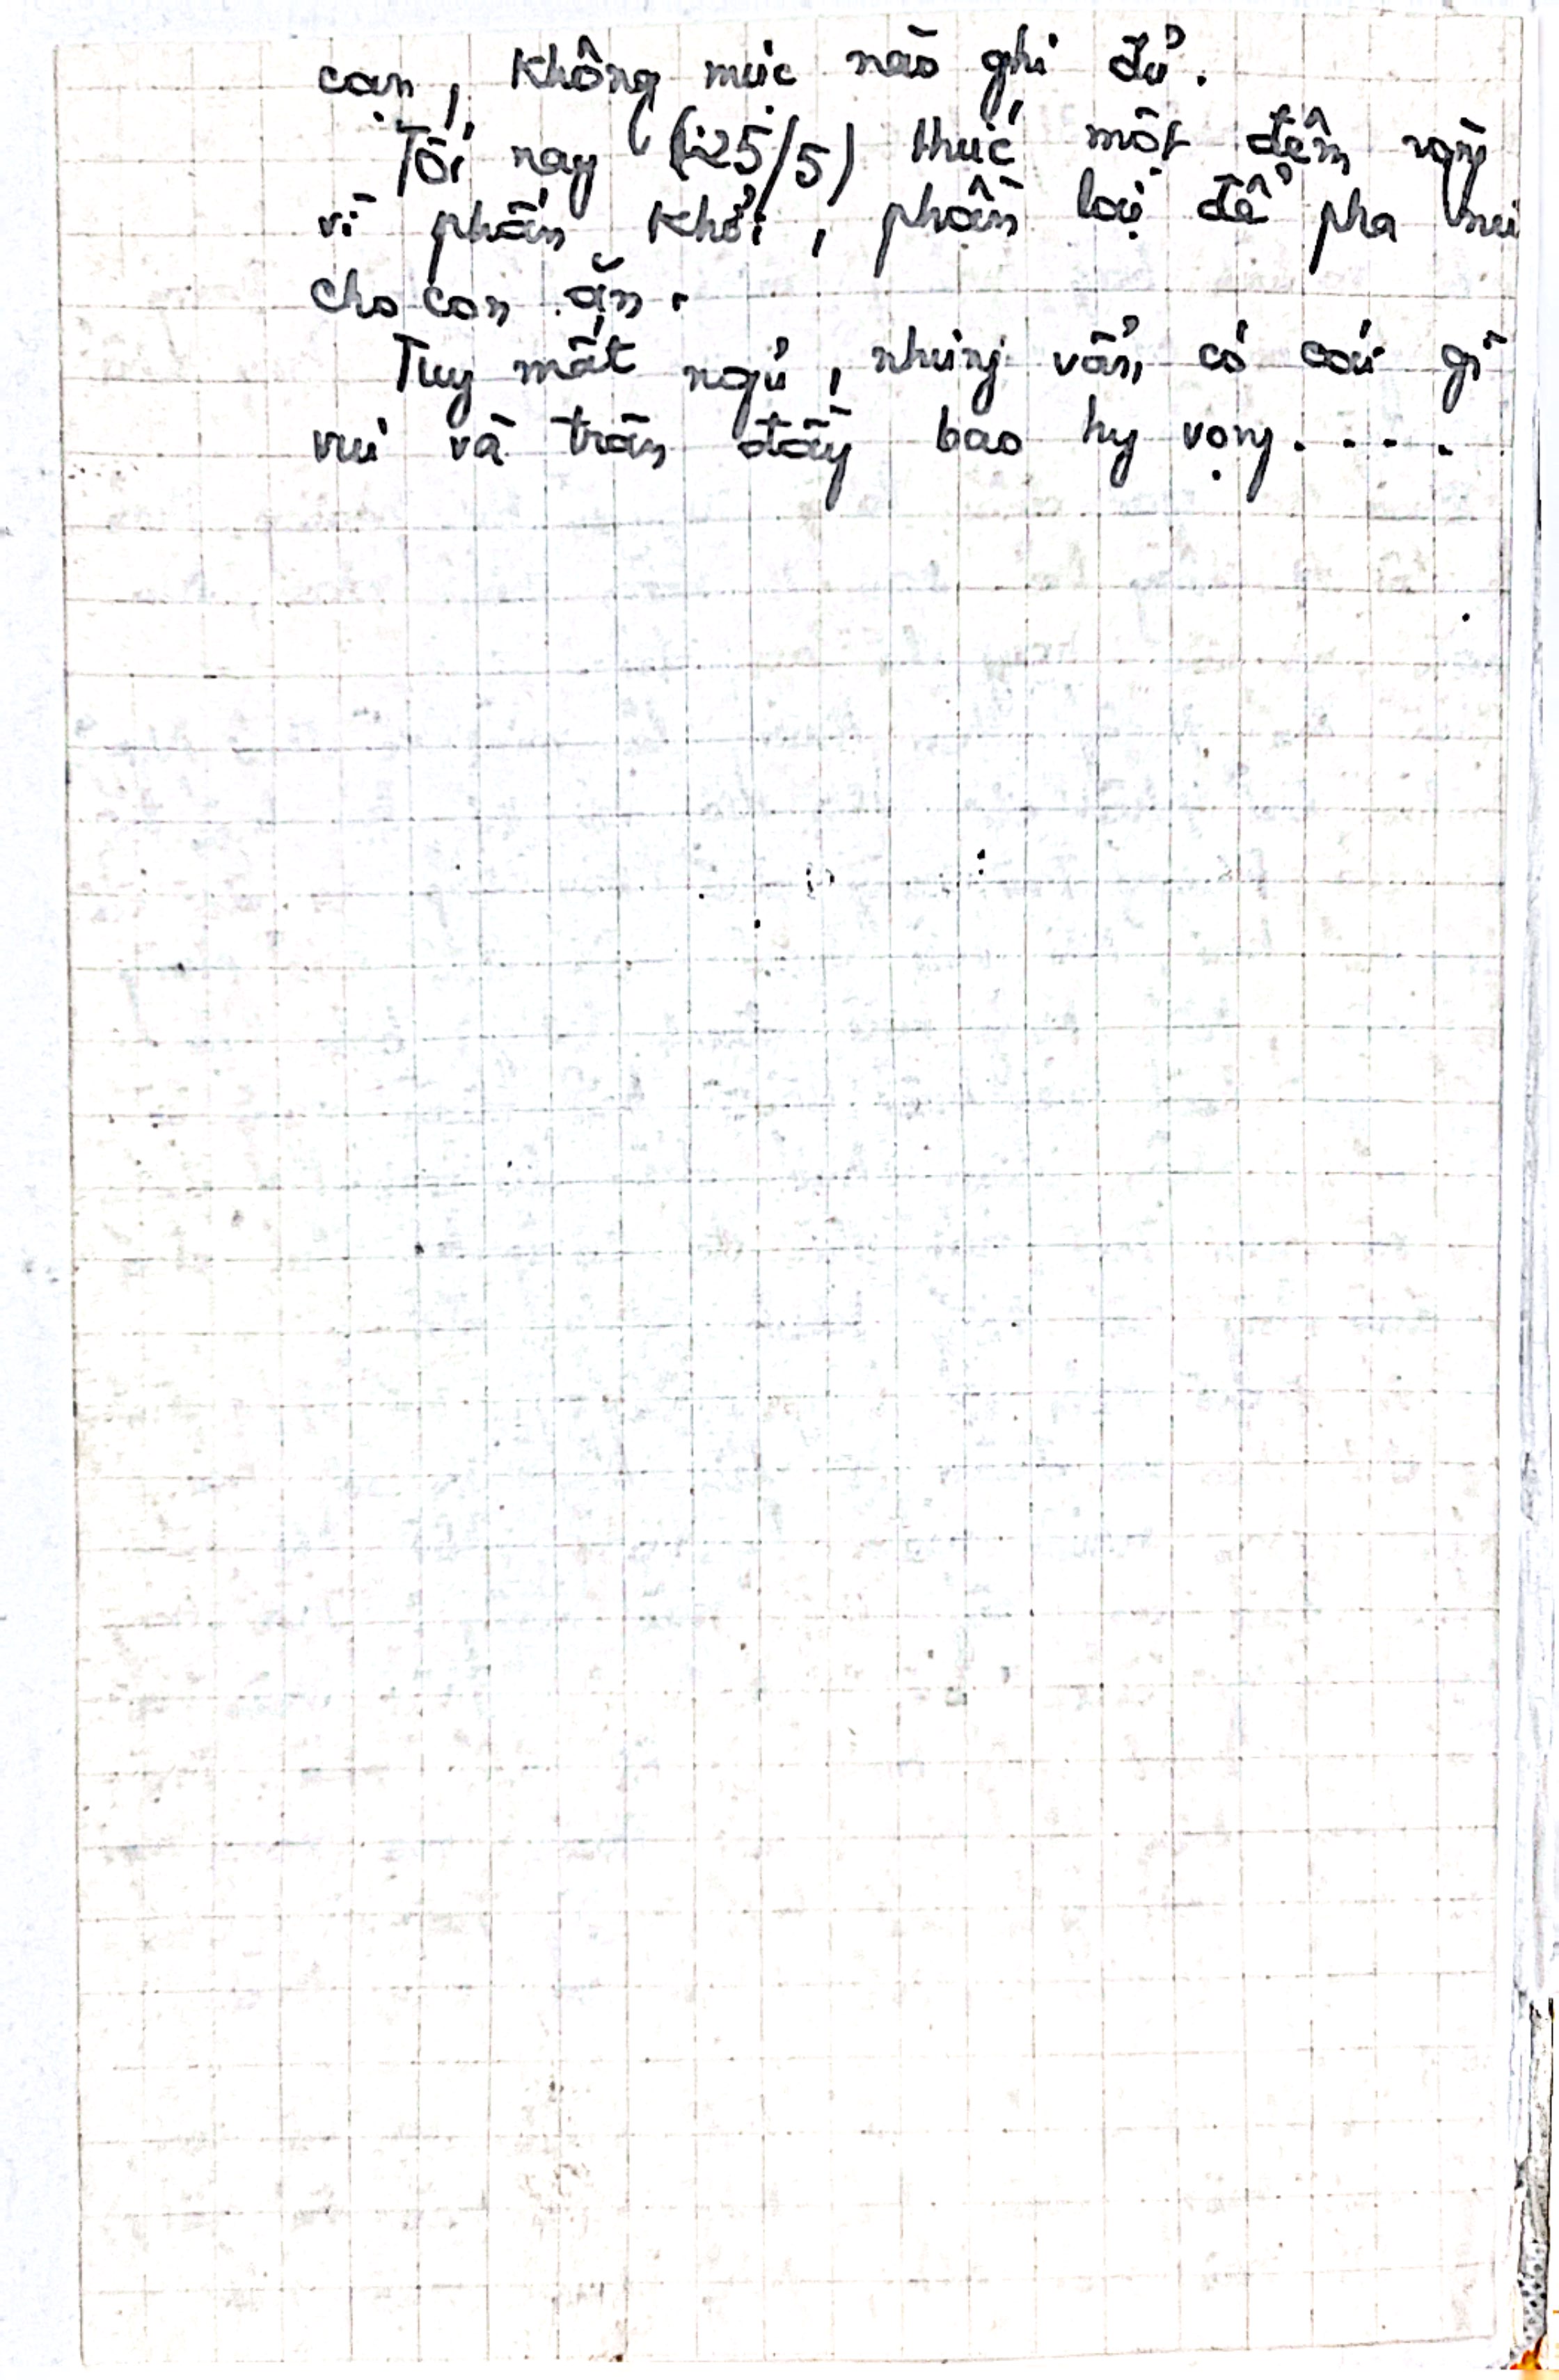 cạn, không mực nào ghi đủ.
Tối nay (25/5) thức một đêm ròng
vì phấn khởi, phần lại để pha sữa
cho con ăn.
Tuy mất ngủ, nhưng vẫn có cái gì
vui và tràn đầy bao hy vọng....